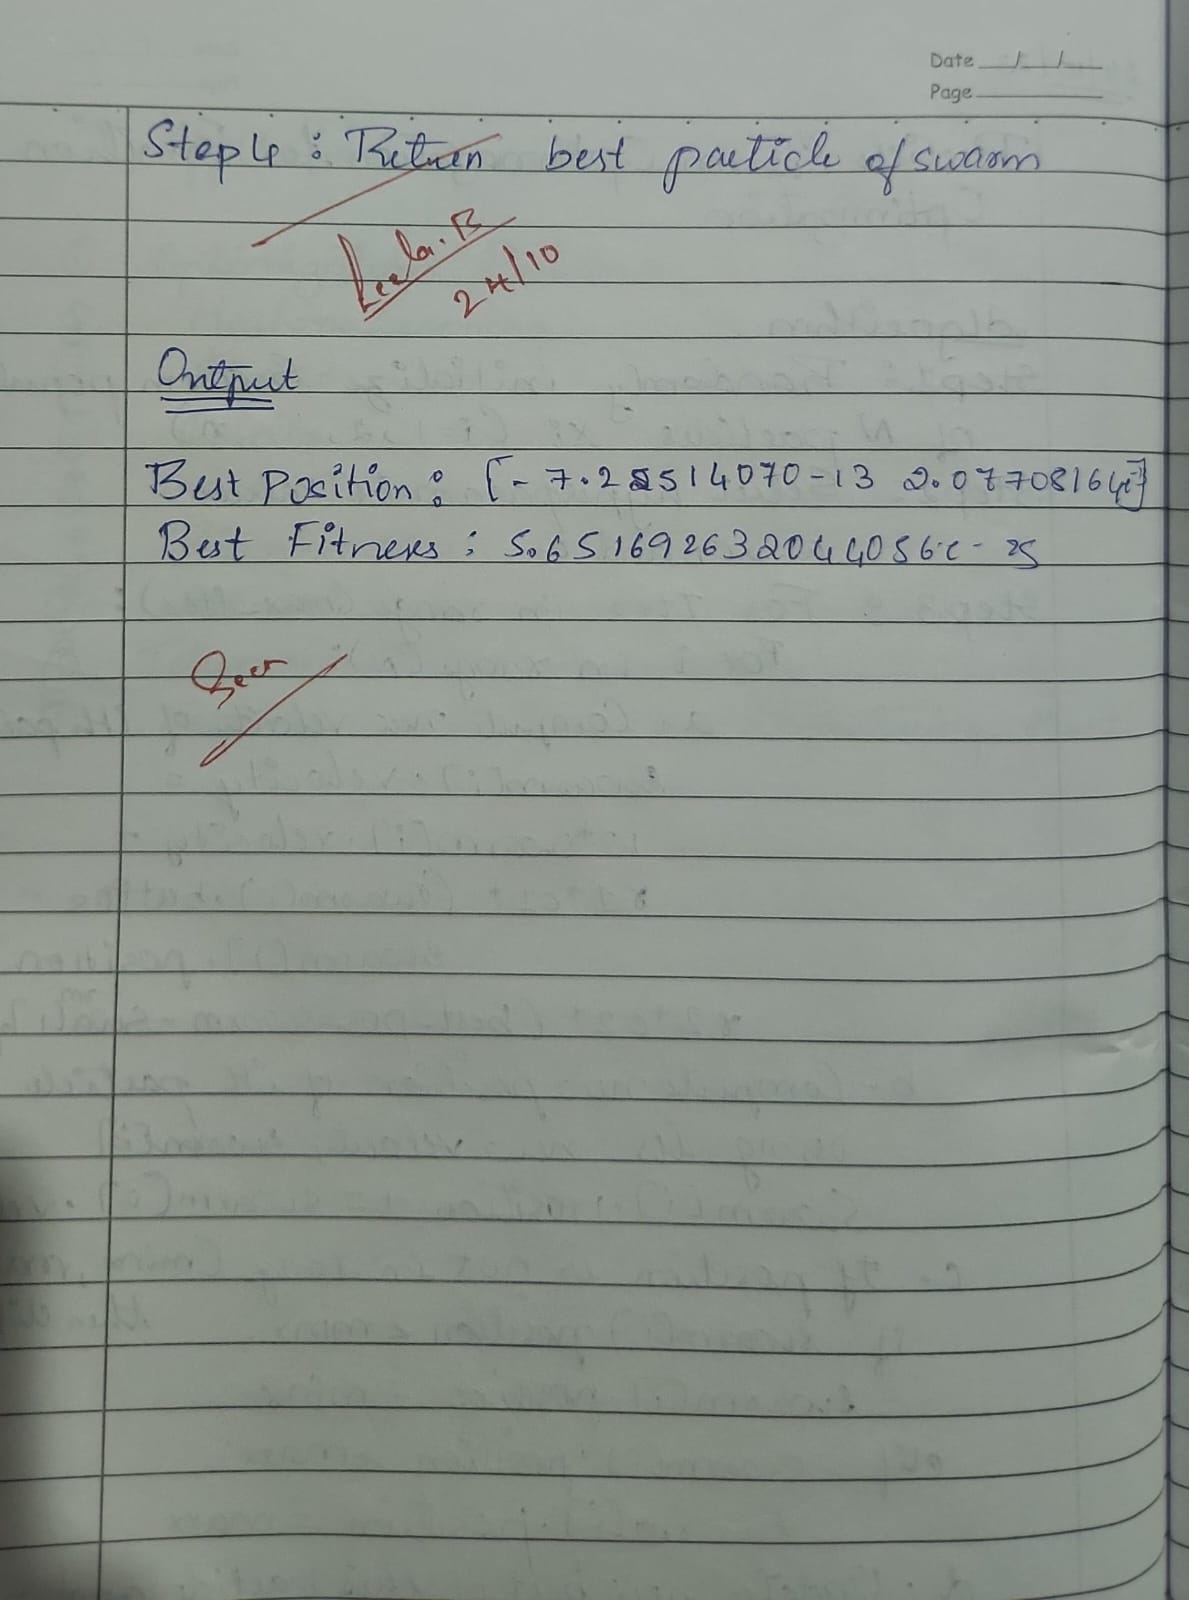 Date / /
Page
Step 4 : Return best particle of swarm
Leela.B
24/10
Output
Best Position : [-7.25514070-13 2.07708164e]
Best Fitness : 5.651692632044056e-25
Seen